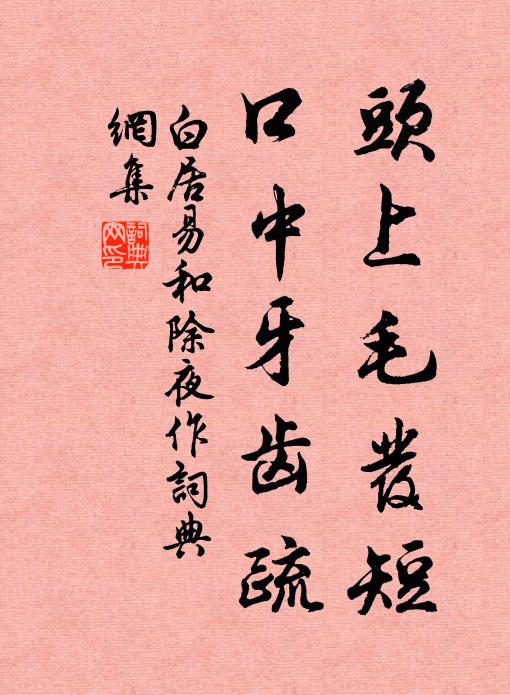 頭上毛發短
口中牙齒疏
白居易和除夜作詞典
網集
詞典
网印